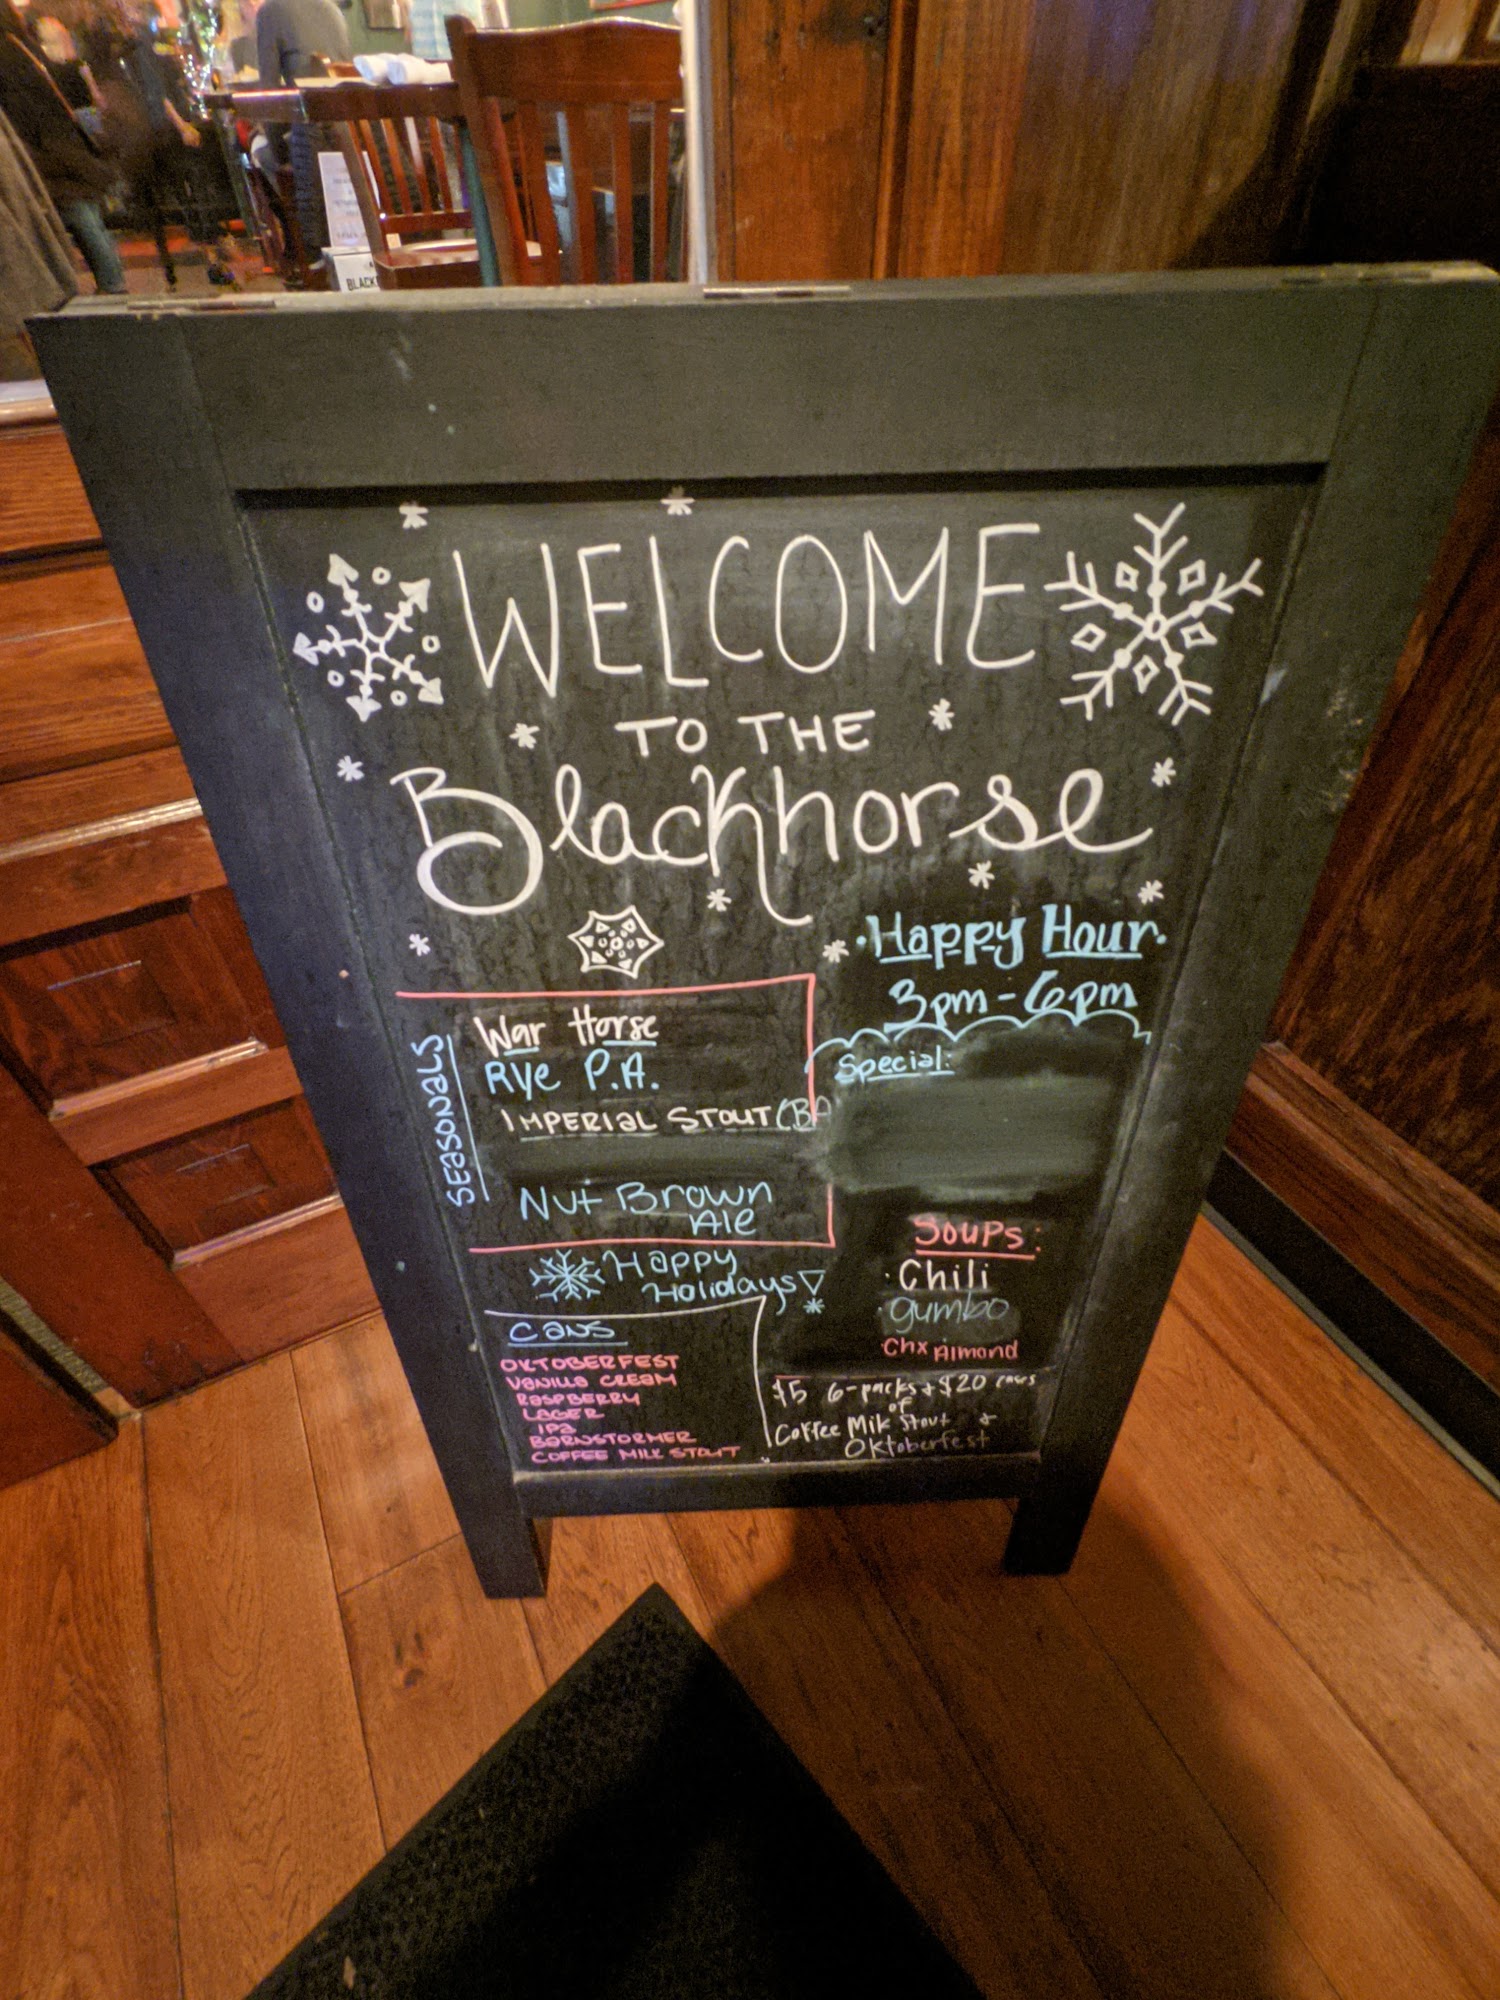 WELCOME
TO THE
Blackhorse
·Happy Hour·
3pm - 6pm
Special:
SEASONALS
War Horse
Rye P.A.
IMPERIAL STOUT (BA
Nut Brown
Ale
Happy
Holidays
CANS
OKTOBERFEST
VANILLA CREAM
RASPBERRY
LAGER
IPA
BARNSTORMER
COFFEE MILK STOUT
Soups:
· Chili
· gumbo
· Chx Almond
$5 6-packs + $20 cases
of
Coffee Milk Stout +
Oktoberfest
BLACK